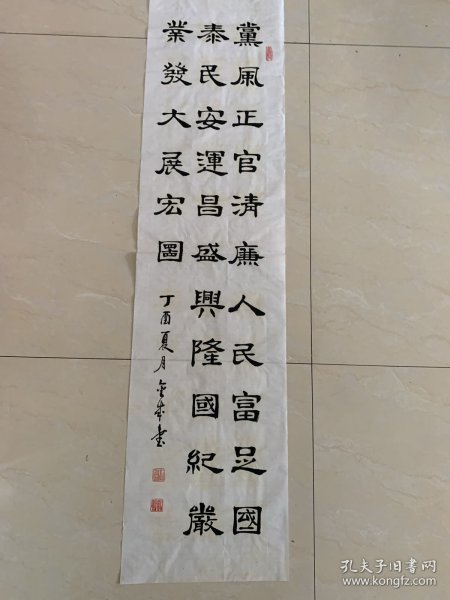 黨風正官清廉人民富足國
泰民安運昌盛興隆國紀嚴
業發大展宏圖
丁酉夏月金成書
孔夫子旧书网
www.kongfz.com